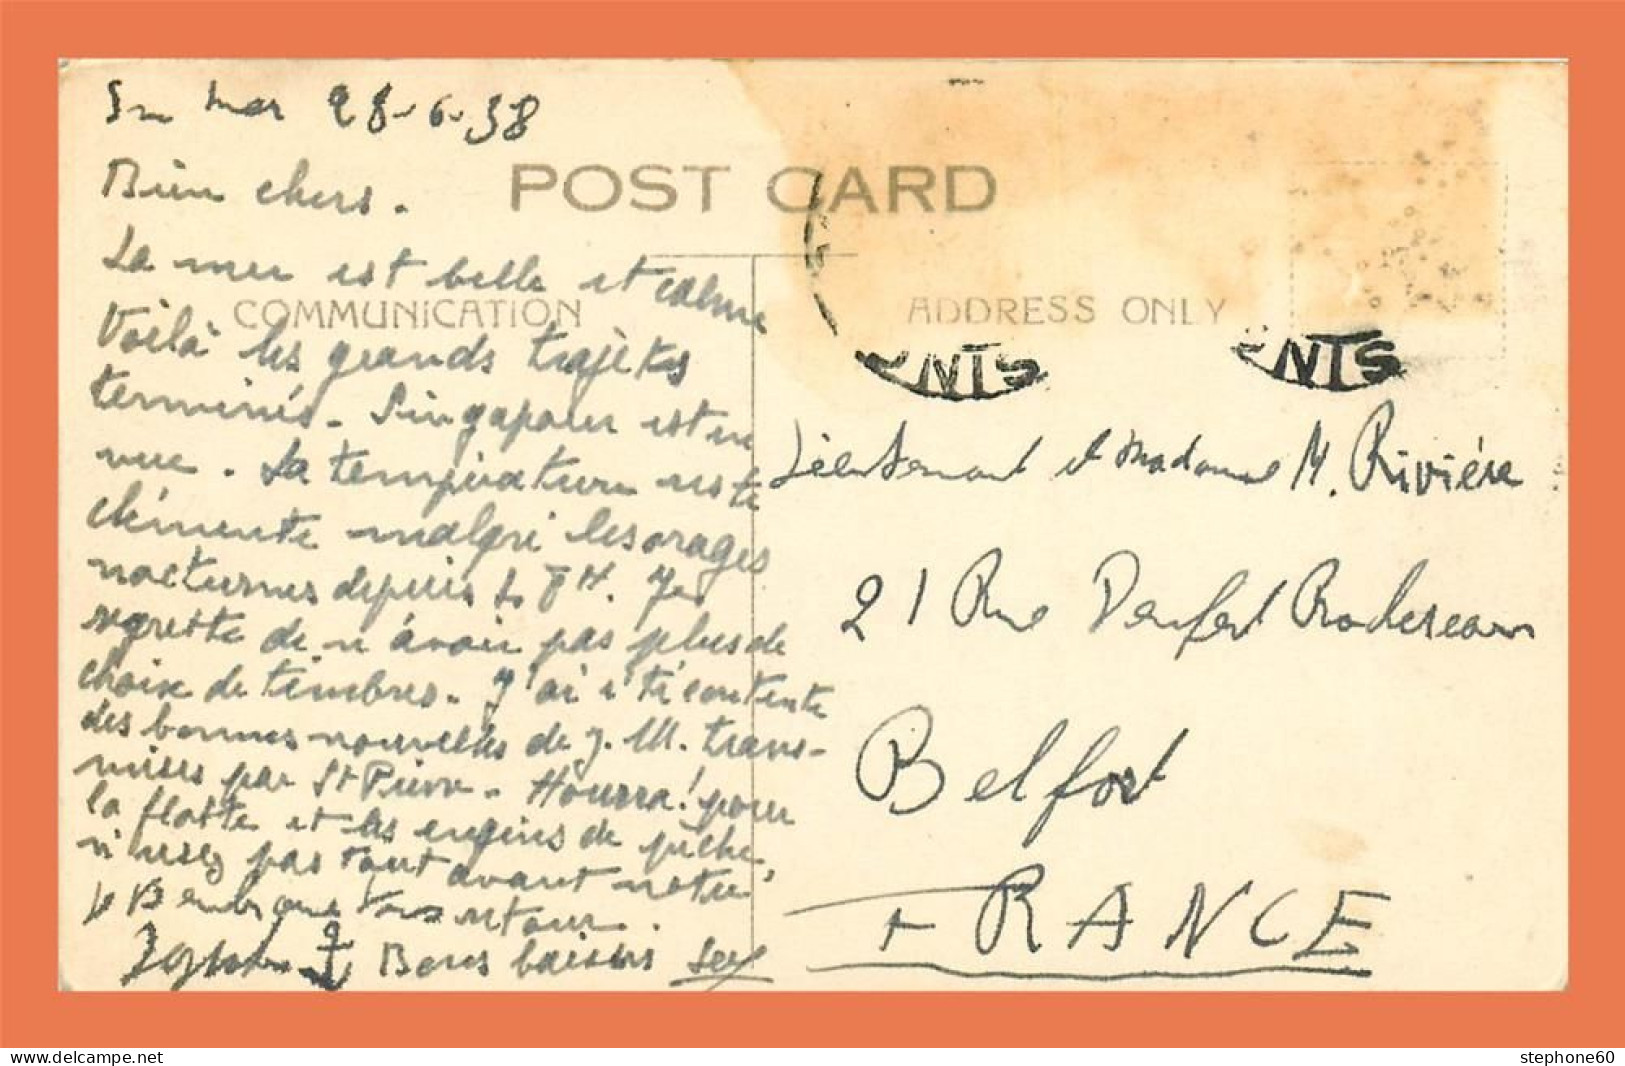 En mer 28-6-38
POST CARD
Bien chers.
La mer est belle et calme
COMMUNICATION
Voilà les grands trajets
terminés. Singapour est en
vue. La température reste
clémente malgré les orages
nocturnes depuis
regrette de n'avoir pas plus de
choix de timbres. J'ai été contente
des bonnes nouvelles de J. M. trans-
mises par St Pierre. Hourra! pour
la flotte et les engins de pêche,
n'usez pas tout avant notre
retour.
Bons baisers
ADDRESS ONLY
NTS
NTS
Lieutenant et Madame M. Rivière
21 Rue Denfert Rochereau
Belfort
FRANCE
www.delcampe.net
stephone60